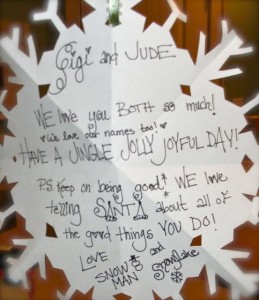 Gigi and JUDE
WE love you BOTH so much!
*We love our names too!*
HAVE A JINGLE JOLLY JOYFUL DAY!
P.S. Keep on being good* WE love
telling SANTA about all of
the good things YOU DO!
LOVE
SNOWMAN and Snowflake